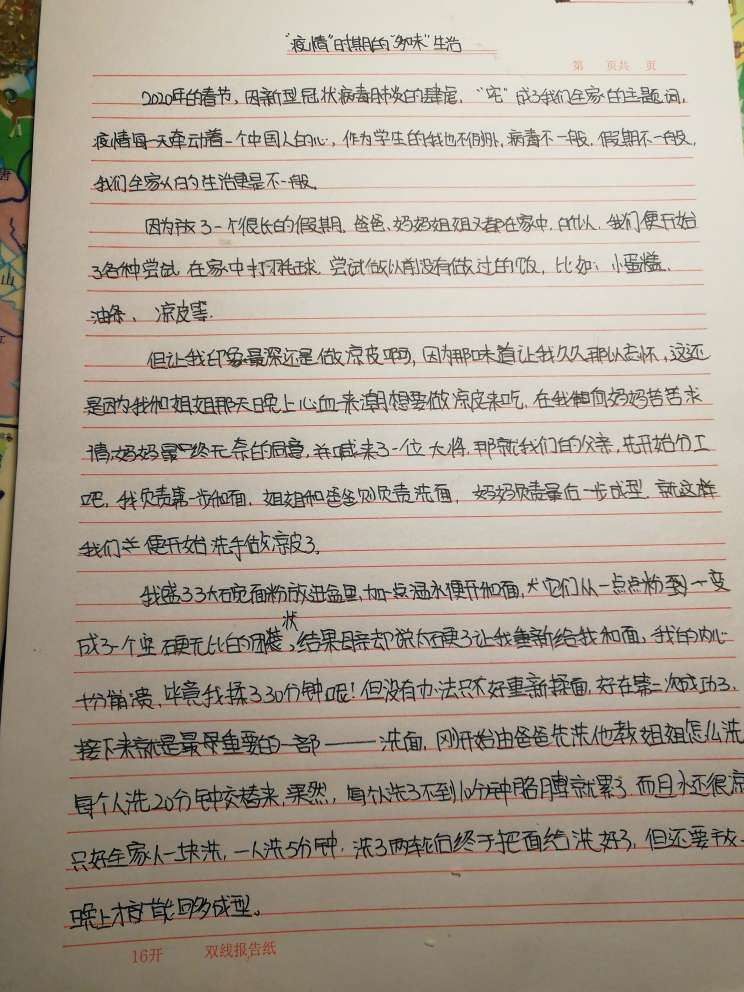 "疫情"时期的"多味"生活
第 页共 页
2020年的春节，因新型冠状病毒肺炎的肆虐，"宅"成了我们全家的主题词，
疫情每一天牵动着一个中国人的心，作为学生的我也不例外，病毒不一般，假期不一般，
我们全家人的生活更是不一般。
因为放了一个很长的假期，爸爸、妈妈姐姐又都在家中，所以，我们便开始
了各种尝试，在家中打羽毛球，尝试做以前没有做过的饭，比如：小蛋糕、
油条、凉皮等.
但让我印象最深还是做凉皮啊，因为那味道让我久久那以忘怀，这还
是因为我和姐姐那天晚上心血来潮想要做凉皮来吃，在我向妈妈苦苦求
情，妈妈最终无奈的同意，并喊来了一位大将，那就我们的父亲，先开始分工
吧，我负责第一步和面，姐姐和爸爸则负责洗面，妈妈负责最后一步成型，就这样
我们便开始洗手做凉皮了。
我盛了3大碗面粉放进盆里，加一点温水便开和面，它们从一点点粉到一变
成了一个坚硬无比的团状，结果母亲却说太硬了让我重新给我和面，我的内心
十分崩溃，毕竟我揉了30分钟呢！但没有办法只不好重新揉面，好在第二次成功了.
接下来就是最最重要的一部——洗面，刚开始由爸爸先洗他教姐姐怎么洗
每个人洗20分钟交替来，果然，每个人洗了不到10分钟胳膊就累了，而且水还很凉
只好全家人一块洗，一人洗5分钟，洗了两轮后终于把面给洗好了，但还要放一
晚上才能够成型。
16开 双线报告纸